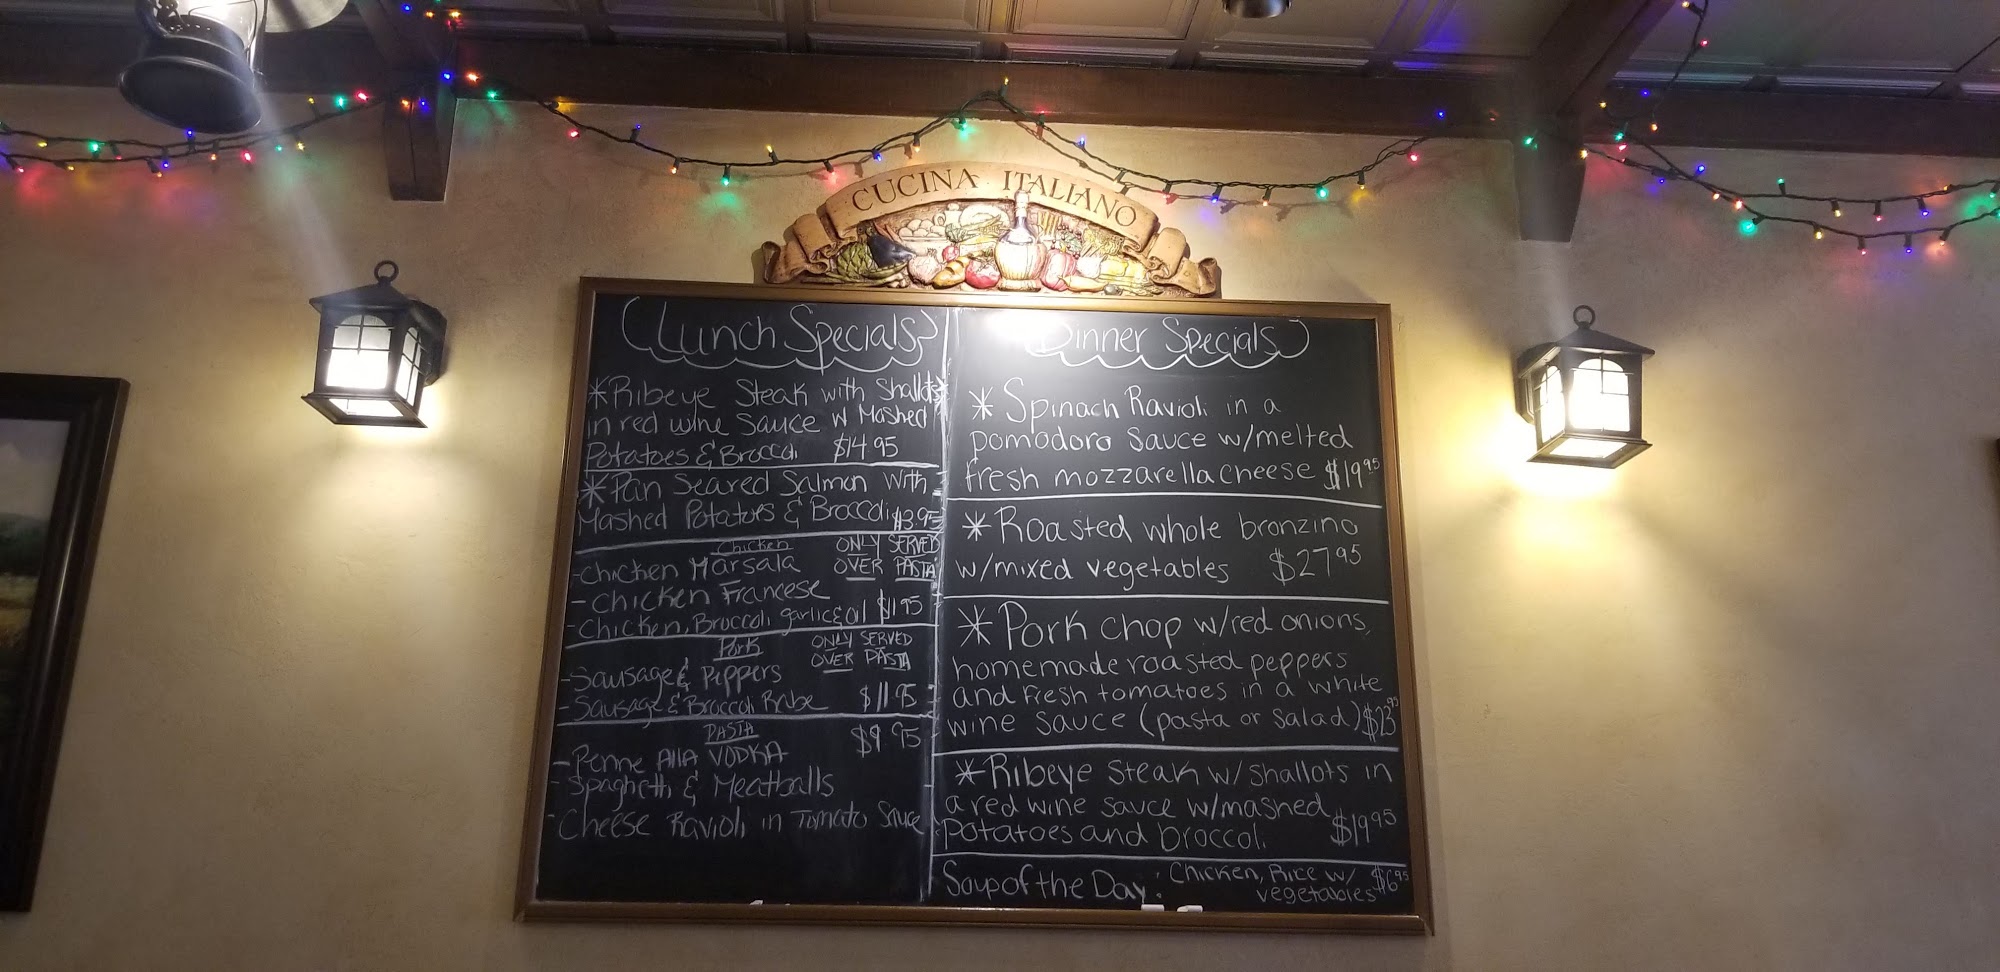 CUCINA ITALIANO
Lunch Specials
*Ribeye Steak with Shallots
in red wine Sauce W Mashed
Potatoes & Broccoli $14.95
*Pan Seared Salmon With
Mashed Potatoes & Broccoli $13.95
Chicken ONLY SERVED
-Chicken Marsala OVER PASTA
-Chicken Francese
-Chicken, Broccoli garlic & oil $11.95
Pork ONLY SERVED
OVER PASTA
-Sausage & Peppers
-Sausage & Broccoli Rabe $11.95
PASTA $9.95
-Penne Alla VODKA
-Spaghetti & Meatballs
-Cheese Ravioli in Tomato Sauce
Dinner Specials
*Spinach Ravioli in a
pomodoro Sauce w/melted
fresh mozzarella cheese $19.95
*Roasted whole bronzino
w/mixed vegetables $27.95
*Pork chop w/red onions,
homemade roasted peppers
and fresh tomatoes in a white
wine sauce (pasta or salad) $23.95
*Ribeye steak w/shallots in
a red wine sauce w/mashed
potatoes and broccoli. $19.95
Soup of the Day: Chicken, Rice w/
vegetables $6.95